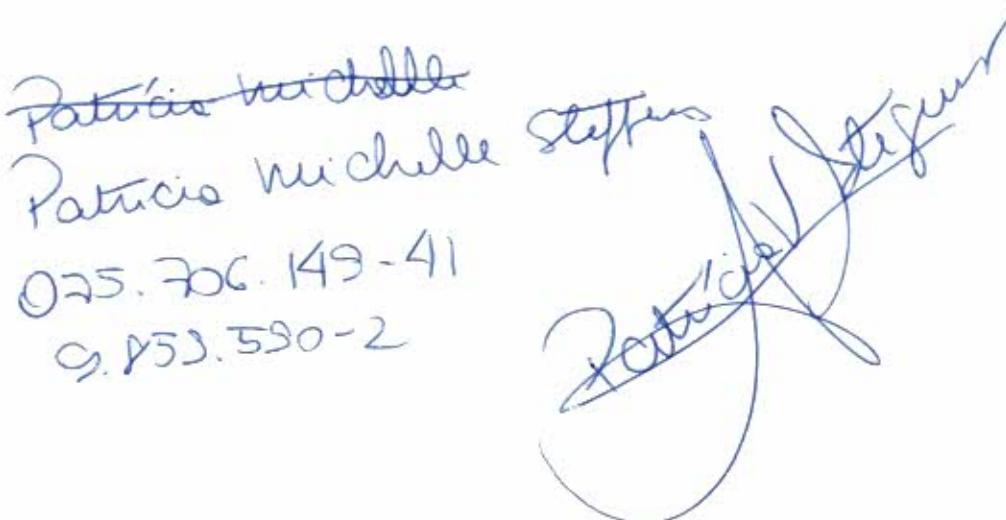 Patrícia Michelle
Patrícia Michelle Steffens
075.706.149-41
9.853.590-2
Patrícia